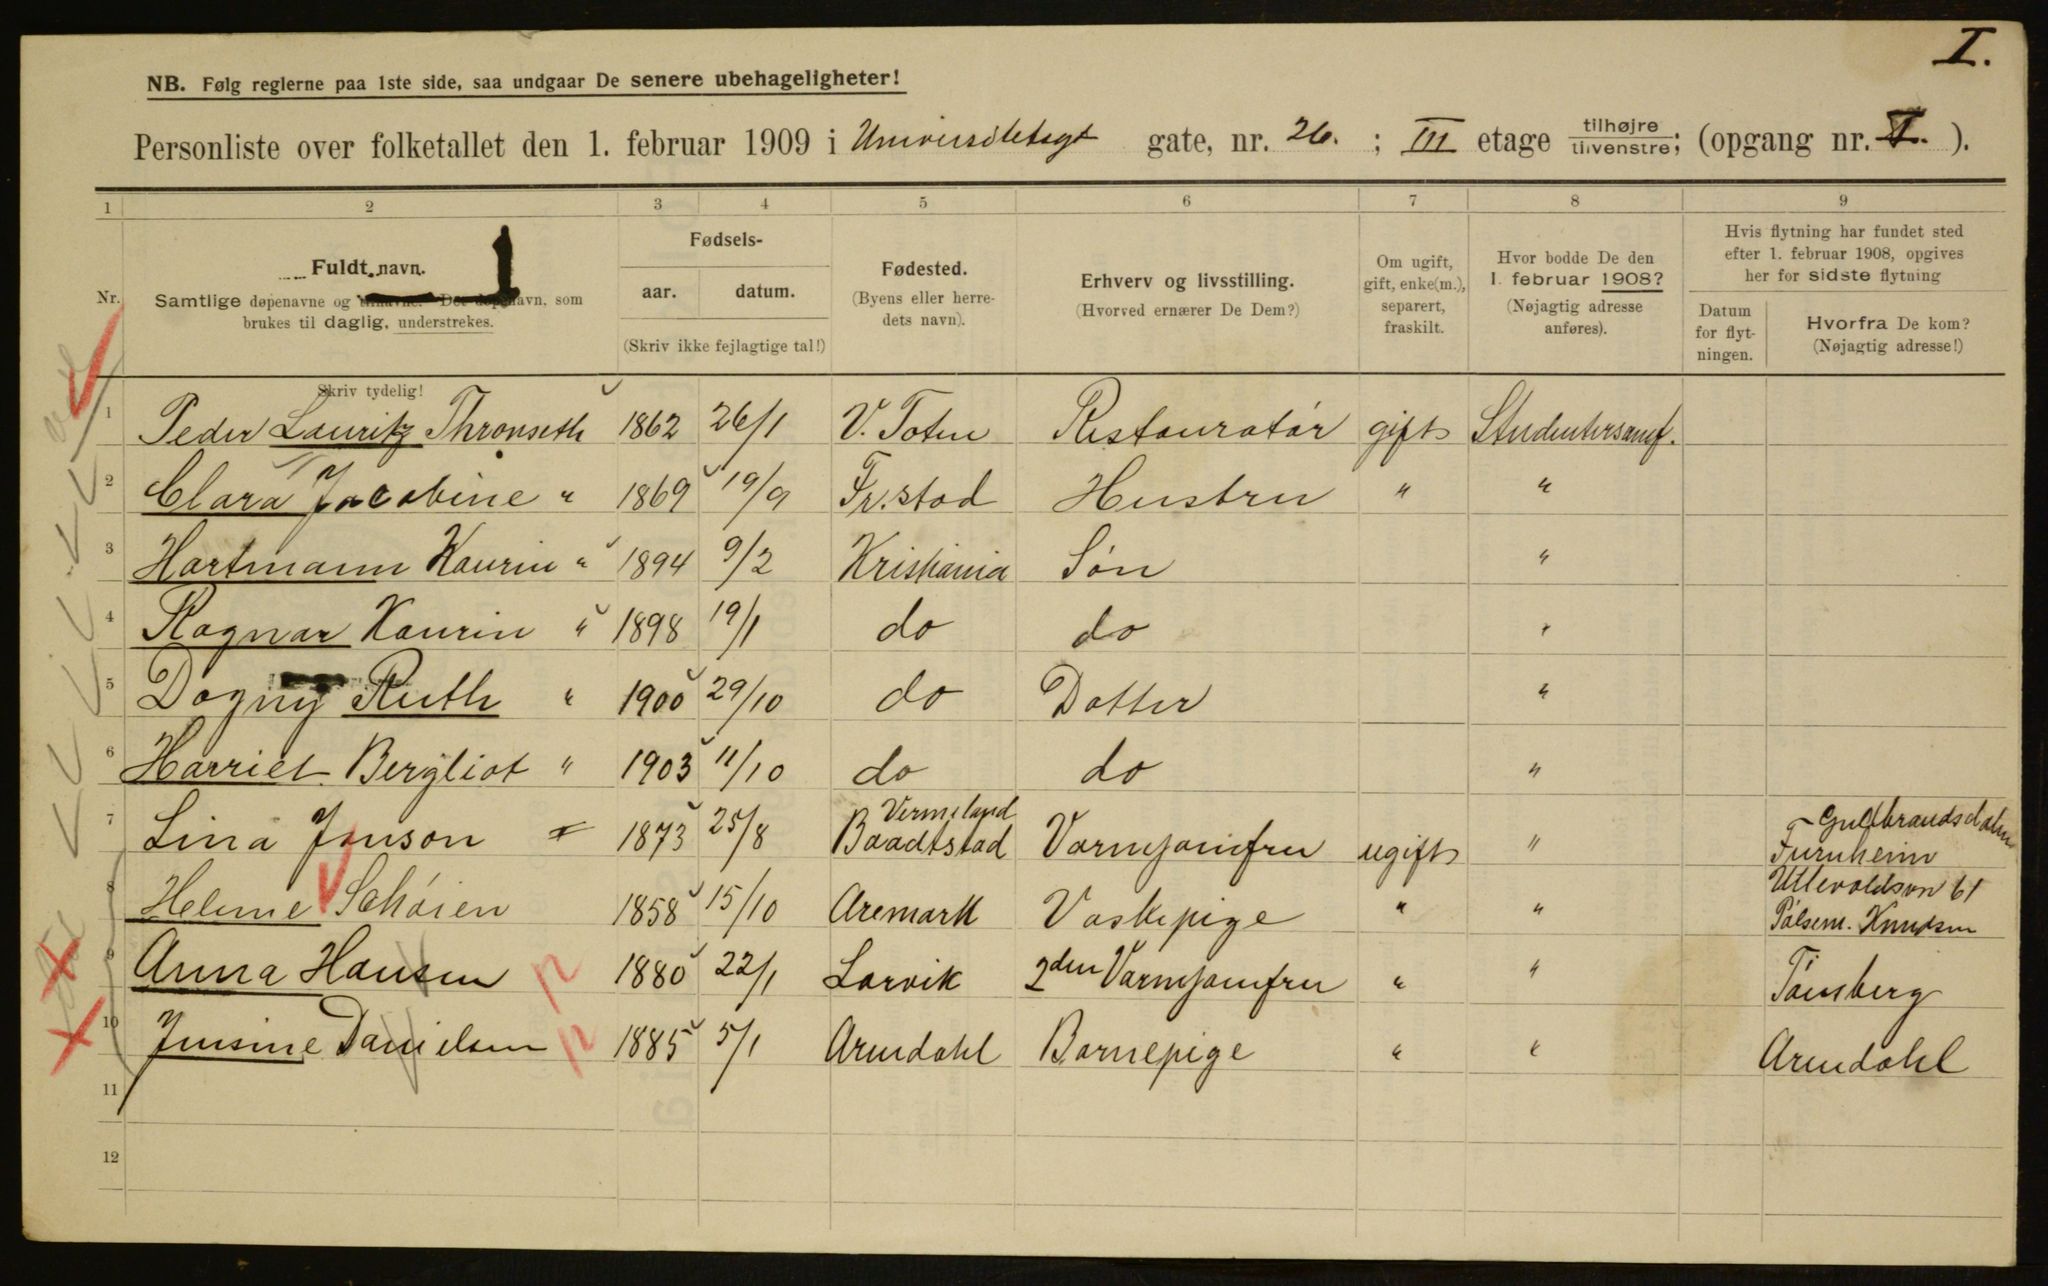 I.
NB. Følg reglerne paa 1ste side, saa undgaar De senere ubehageligheter!
Personliste over folketallet den 1. februar 1909 i Universitetsgt gate, nr. 26. ; III etage tilhøjre tilvenstre; (opgang nr. I. ).
1 2 3 4 5 6 7 8 9
Nr.
Fuldt navn.
Samtlige døpenavne og tilnavne. Det døpenavn, som
brukes til daglig, understrekes.
Skriv tydelig!
1
Fødsels-
aar. datum.
(Skriv ikke fejlagtige tal!)
Fødested.
(Byens eller herre-
dets navn).
Erhverv og livsstilling.
(Hvorved ernærer De Dem?)
Om ugift,
gift, enke(m.),
separert,
fraskilt.
Hvor bodde De den
1. februar 1908?
(Nøjagtig adresse
anføres).
Hvis flytning har fundet sted
efter 1. februar 1908, opgives
her for sidste flytning
Datum
for flyt-
ningen.
Hvorfra De kom?
(Nøjagtig adresse!)
1 Peder Lauritz Thronseth 1862 26/1 V. Toten Restauratør gift Studentersamf.
2 Clara Jacobine " 1869 19/9 Fr.stad Hustru " "
3 Hartmann Kaurin " 1894 9/2 Kristiania Søn "
4 Ragnar Kaurin " 1898 19/1 do do "
5 Dagny Ruth " 1900 29/10 do Datter "
6 Harriet Bergliot " 1903 11/10 do do "
7 Lina Jonson 1873 25/8 Vermeland Baadtstad Varmjomfru ugift " Gulbrandsdalen Furuheim
8 Helene Schøien 1858 15/10 Aremark Vaskepige " " Ullevoldsvn 61 Pølsem. Knudsen
9 Anna Hansen 1880 22/1 Larvik 2den Varmjomfru " " Tønsberg
10 Jensine Danielsen 1885 5/1 Arendahl Barnepige " " Arendahl
11
12